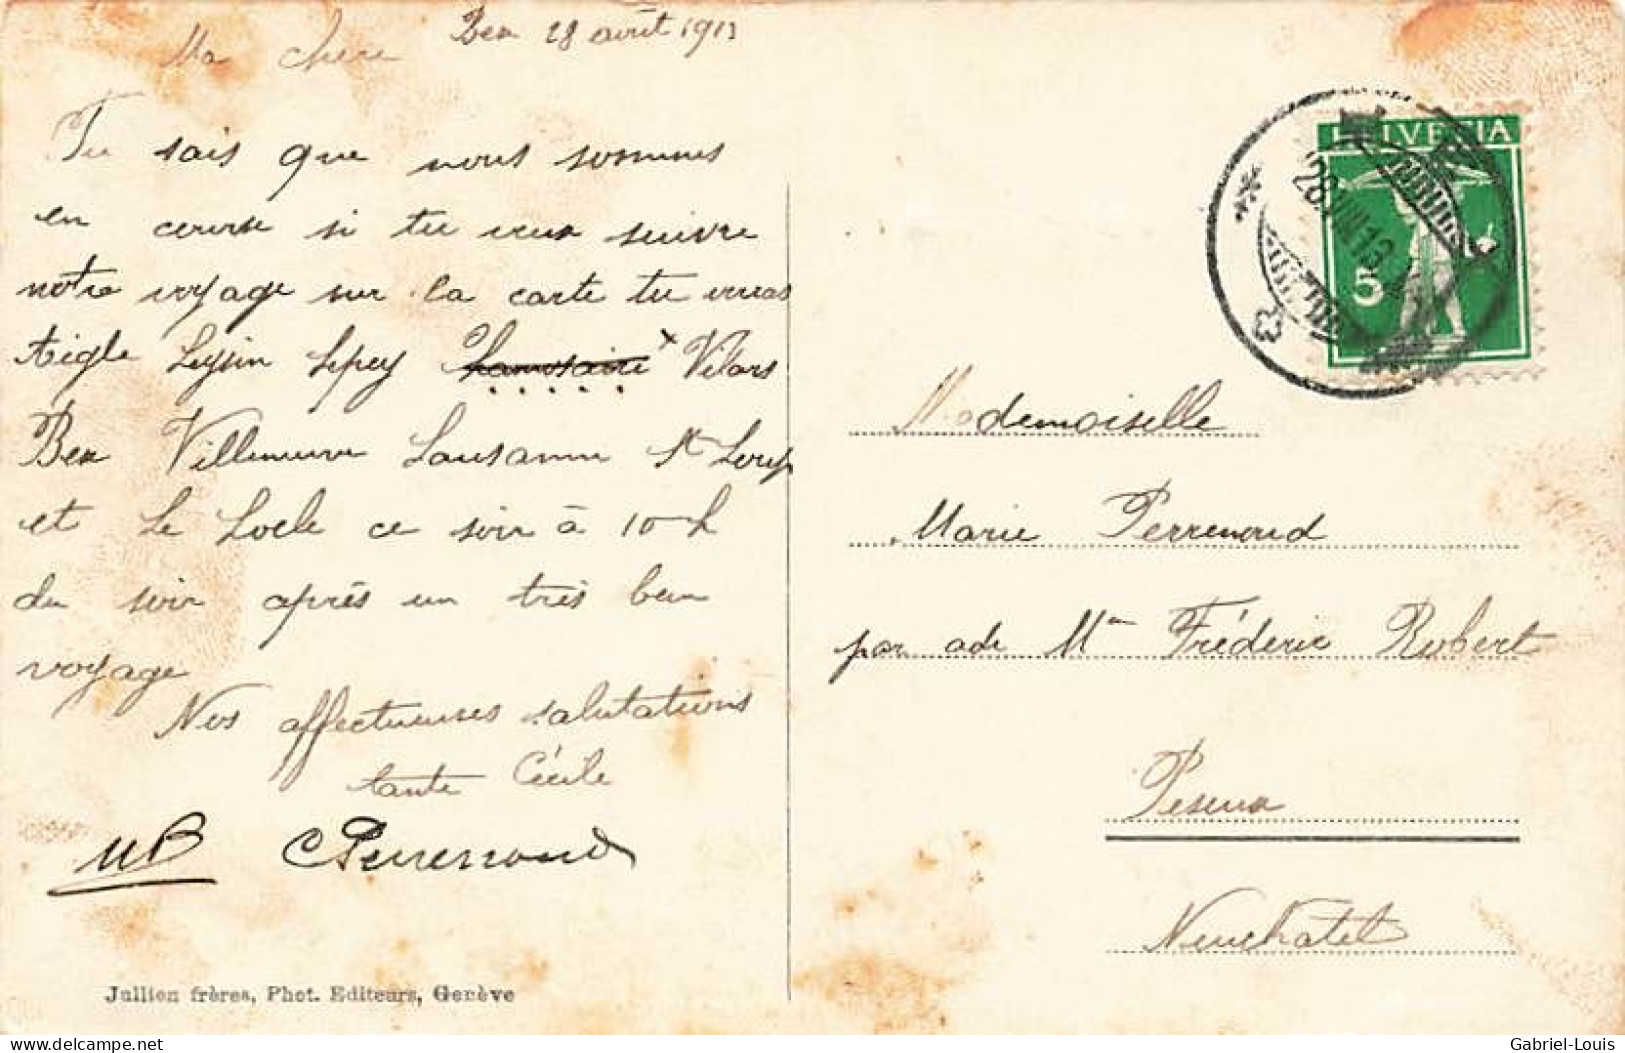 Bex 28 août 1913
Ma chère
Tu sais que nous sommes
en course si tu veux suivre
notre voyage sur la carte tu verras
Aigle Leysin Sepey Chamosaire x Vilars
Bex Villeneuve Lausanne St Loup
et Le Locle ce soir à 10 h
du soir après un très beau
voyage
Nos affectueuses salutations
tante Cécile
MP CPerrenoud
Jullien frères, Phot. Editeurs, Genève
HELVETIA
5
28.VIII.13
Mademoiselle
Marie Perrenoud
par adr Mme Fréderic Robert
Peseux
Neuchatel
delcampe.net
Gabriel-Louis